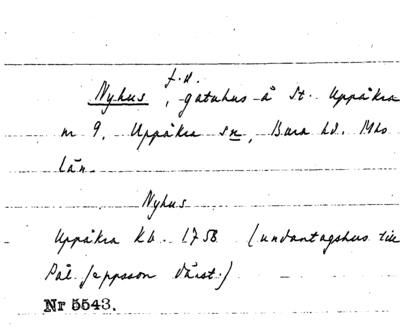 f.d.
Nyhus, gatuhus å St. Uppåkra
nr 9, Uppåkra sn, Bara hd. Mhs
Län.
Nyhus
Uppåkra Kb. 1758 (undantagshus till
Pål Jeppsson Därst.)
Nr 5543.